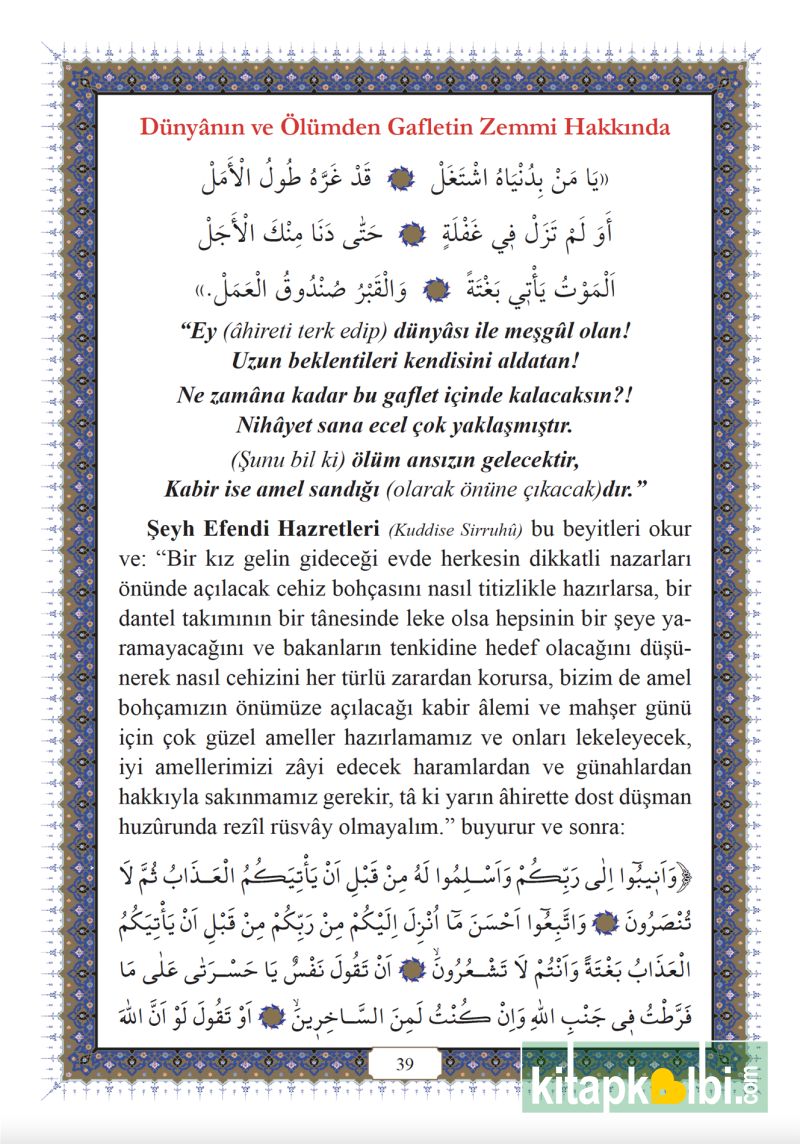 Dünyânın ve Ölümden Gafletin Zemmi Hakkında
«يَا مَنْ بِدُنْيَاهُ اشْتَغَلْ ۞ قَدْ غَرَّهُ طُولُ الْأَمَلْ
أَوَ لَمْ تَزَلْ فِي غَفْلَةٍ ۞ حَتّٰى دَنَا مِنْكَ الْأَجَلْ
اَلْمَوْتُ يَأْتِي بَغْتَةً ۞ وَالْقَبْرُ صُنْدُوقُ الْعَمَلْ.»
“Ey (âhireti terk edip) dünyâsı ile meşgûl olan!
Uzun beklentileri kendisini aldatan!
Ne zamâna kadar bu gaflet içinde kalacaksın?!
Nihâyet sana ecel çok yaklaşmıştır.
(Şunu bil ki) ölüm ansızın gelecektir,
Kabir ise amel sandığı (olarak önüne çıkacak)dır.”
Şeyh Efendi Hazretleri (Kuddise Sirruhû) bu beyitleri okur
ve: “Bir kız gelin gideceği evde herkesin dikkatli nazarları
önünde açılacak cehiz bohçasını nasıl titizlikle hazırlarsa, bir
dantel takımının bir tânesinde leke olsa hepsinin bir şeye ya-
ramayacağını ve bakanların tenkidine hedef olacağını düşü-
nerek nasıl cehizini her türlü zarardan korursa, bizim de amel
bohçamızın önümüze açılacağı kabir âlemi ve mahşer günü
için çok güzel ameller hazırlamamız ve onları lekeleyecek,
iyi amellerimizi zâyi edecek haramlardan ve günahlardan
hakkıyla sakınmamız gerekir, tâ ki yarın âhirette dost düşman
huzûrunda rezîl rüsvây olmayalım.” buyurur ve sonra:
﴿وَاَنٖيبُٓوا اِلٰى رَبِّكُمْ وَاَسْلِمُوا لَهُ مِنْ قَبْلِ اَنْ يَأْتِيَكُمُ الْعَذَابُ ثُمَّ لَا
تُنْصَرُونَ ۞ وَاتَّبِعُٓوا اَحْسَنَ مَٓا اُنْزِلَ اِلَيْكُمْ مِنْ رَبِّكُمْ مِنْ قَبْلِ اَنْ يَأْتِيَكُمُ
الْعَذَابُ بَغْتَةً وَاَنْتُمْ لَا تَشْعُرُونَۙ ۞ اَنْ تَقُولَ نَفْسٌ يَا حَسْرَتٰى عَلٰى مَا
فَرَّطْتُ فٖي جَنْبِ اللّٰهِ وَاِنْ كُنْتُ لَمِنَ السَّاخِرٖينَۙ ۞ اَوْ تَقُولَ لَوْ اَنَّ اللّٰهَ
39
kitapkalbi.com